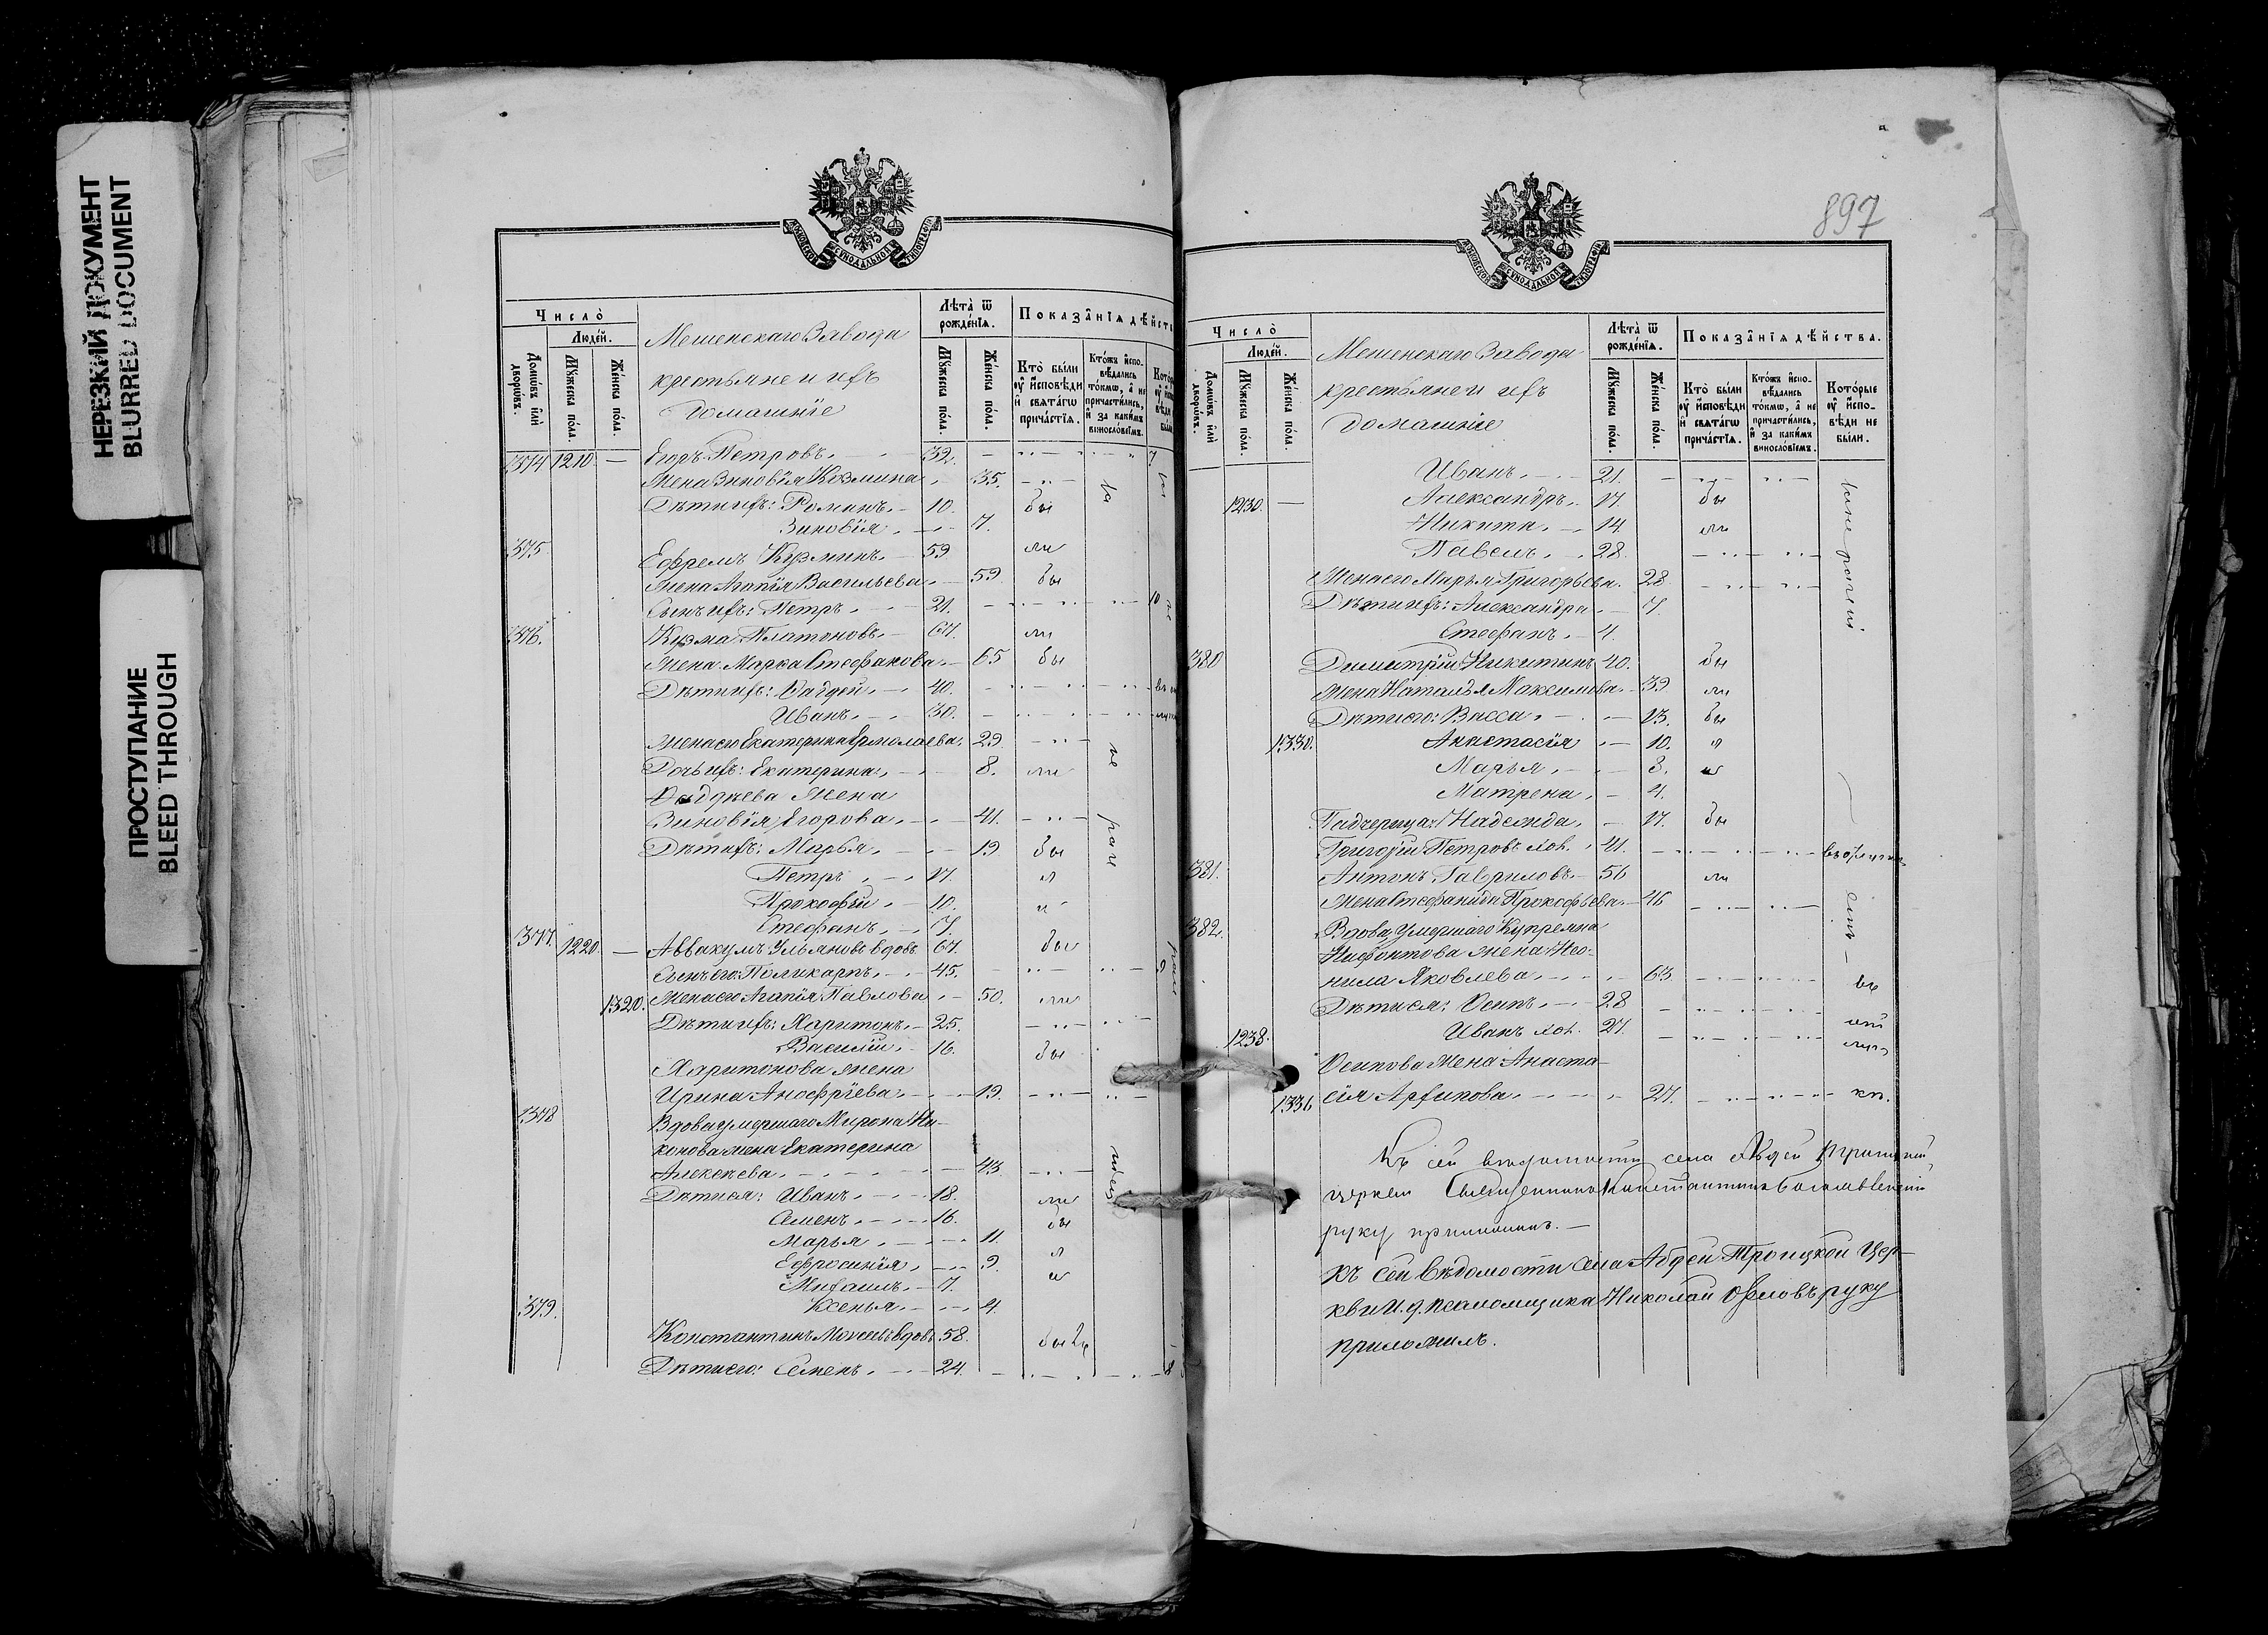 НЕРЕЗКИЙ ДОКУМЕНТ
BLURRED DOCUMENT
ПРОСТУПАНИЕ
BLEED THROUGH
МОСКОВСКОЙ СѴНОДАЛЬНОЙ ТИПОГРАФІИ
Число̀
Люде́й.
Домѡ́въ и҆лѝ дворѡ́въ.
Мꙋ́жеска по́ла.
Же́нска по́ла.
Мешенскаго Завода
крестьяне и ихъ
домашніе
Лѣта̀ ѿ рожде́нїѧ.
Мꙋ́жеска по́ла.
Же́нска по́ла.
Показа̑нїѧ дѣ́йств
Кто̀ бы́ли ᲂу҆ и҆сповѣ́ди и҆ свѧта́гѡ прича́стїѧ.
Кто́жъ и҆спо-вѣ́дались то́кмѡ, а҆ не причасти́лись, и҆ за каки́мъ виносло́вїемъ.
374 1210 — Егоръ Петровъ. 32.
Жена Зиновія Козмина. 35.
Дѣти ихъ: Романъ. 10. бы
Зиновія. 7.
375 Ефремъ Кузминъ. 59 ли
Жена Агапія Васильева. 59 бы
Сынъ ихъ: Петръ. 21. 10
376. Кузма Платоновъ. 67. ли
Жена Марѳа Стефанова. 65 бы
Дѣти ихъ: Фаддей. 40.
Иванъ. 30.
Жена его Екатерина Ермолаева. 29
Дочь ихъ: Екатерина. 8. ли
Фаддѣева жена
Зиновія Егорова. 41.
Дѣти ихъ: Марья. 19 бы
Петръ. 17. л
Прокофій. 10. и
Стефанъ. 7.
377. 1220. — Аввакумъ Ульяновъ вдовъ 67. бы
Сынъ его: Поликарпъ. 45. 9
1320. Жена его Агапія Павлова 50. ли
Дѣти ихъ: Харитонъ. 25.
Василій. 16. бы
Харитонова жена
Ирина Анофріева. 19.
378 Вдова умершаго Мирона Ни-
конова жена Екатерина
Алексѣева. 43
Дѣти ея: Иванъ. 18. ли
Семенъ. 16. бы
Марья. 11. л
Ефросинія. 9. и
Михаилъ. 7.
Ксенья. 4.
379. Константинъ Моисеевъ вдовъ 58.
Дѣти его: Семенъ. 24. 8
897
МОСКОВСКОЙ СѴНОДАЛЬНОЙ ТИПОГРАФІИ
Число̀
Люде́й.
Домѡ́въ и҆лѝ дворѡ́въ.
Мꙋ́жеска по́ла.
Же́нска по́ла.
Мешенскаго Завода
крестьяне и ихъ
домашніе
Лѣта̀ ѿ рожде́нїѧ.
Мꙋ́жеска по́ла.
Же́нска по́ла.
Показа̑нїѧ дѣ́йства.
Кто̀ бы́ли ᲂу҆ и҆сповѣ́ди и҆ свѧта́гѡ прича́стїѧ.
Кто́жъ и҆спо-вѣ́дались то́кмѡ, а҆ не причасти́лись, и҆ за каки́мъ виносло́вїемъ.
Кото́рые ᲂу҆ и҆спо-вѣ́ди не бы́ли.
Иванъ. 21.
1230. — Александръ. 17. бы
Никита. 14 ли
Павелъ. 28.
Жена его Марья Григорьева. 28
Дѣти ихъ: Александра. 7.
Стефанъ. 4.
380 Димитрій Никитинъ 40. бы
Жена Наталья Максимова. 39 ли
Дѣти его: Васса. 13. бы
1330. Анастасія 10. л
Марья. 8. и
Матрена. 4.
Падчерица: Надежда. 17. бы
Григорій Петровъ хол. 41.
381. Антонъ Гавриловъ 56 ли
Жена Стефанида Прокофьева. 46
382. Вдова умершаго Купреяна
Нифонтова жена Нео-
нила Яковлева. 63. въ
Дѣти ея: Осипъ. 28
1238. Иванъ хол. 27.
Осипова жена Анаста-
1336 сія Архипова. 27.
Къ сей вѣдомости села Абдей Троицкой
церкви Священникъ Константинъ
руку приложилъ.
Къ сей вѣдомости села Абдей Троицкой Цер-
кви И. д. псаломщика Николай Орловъ руку
приложилъ.